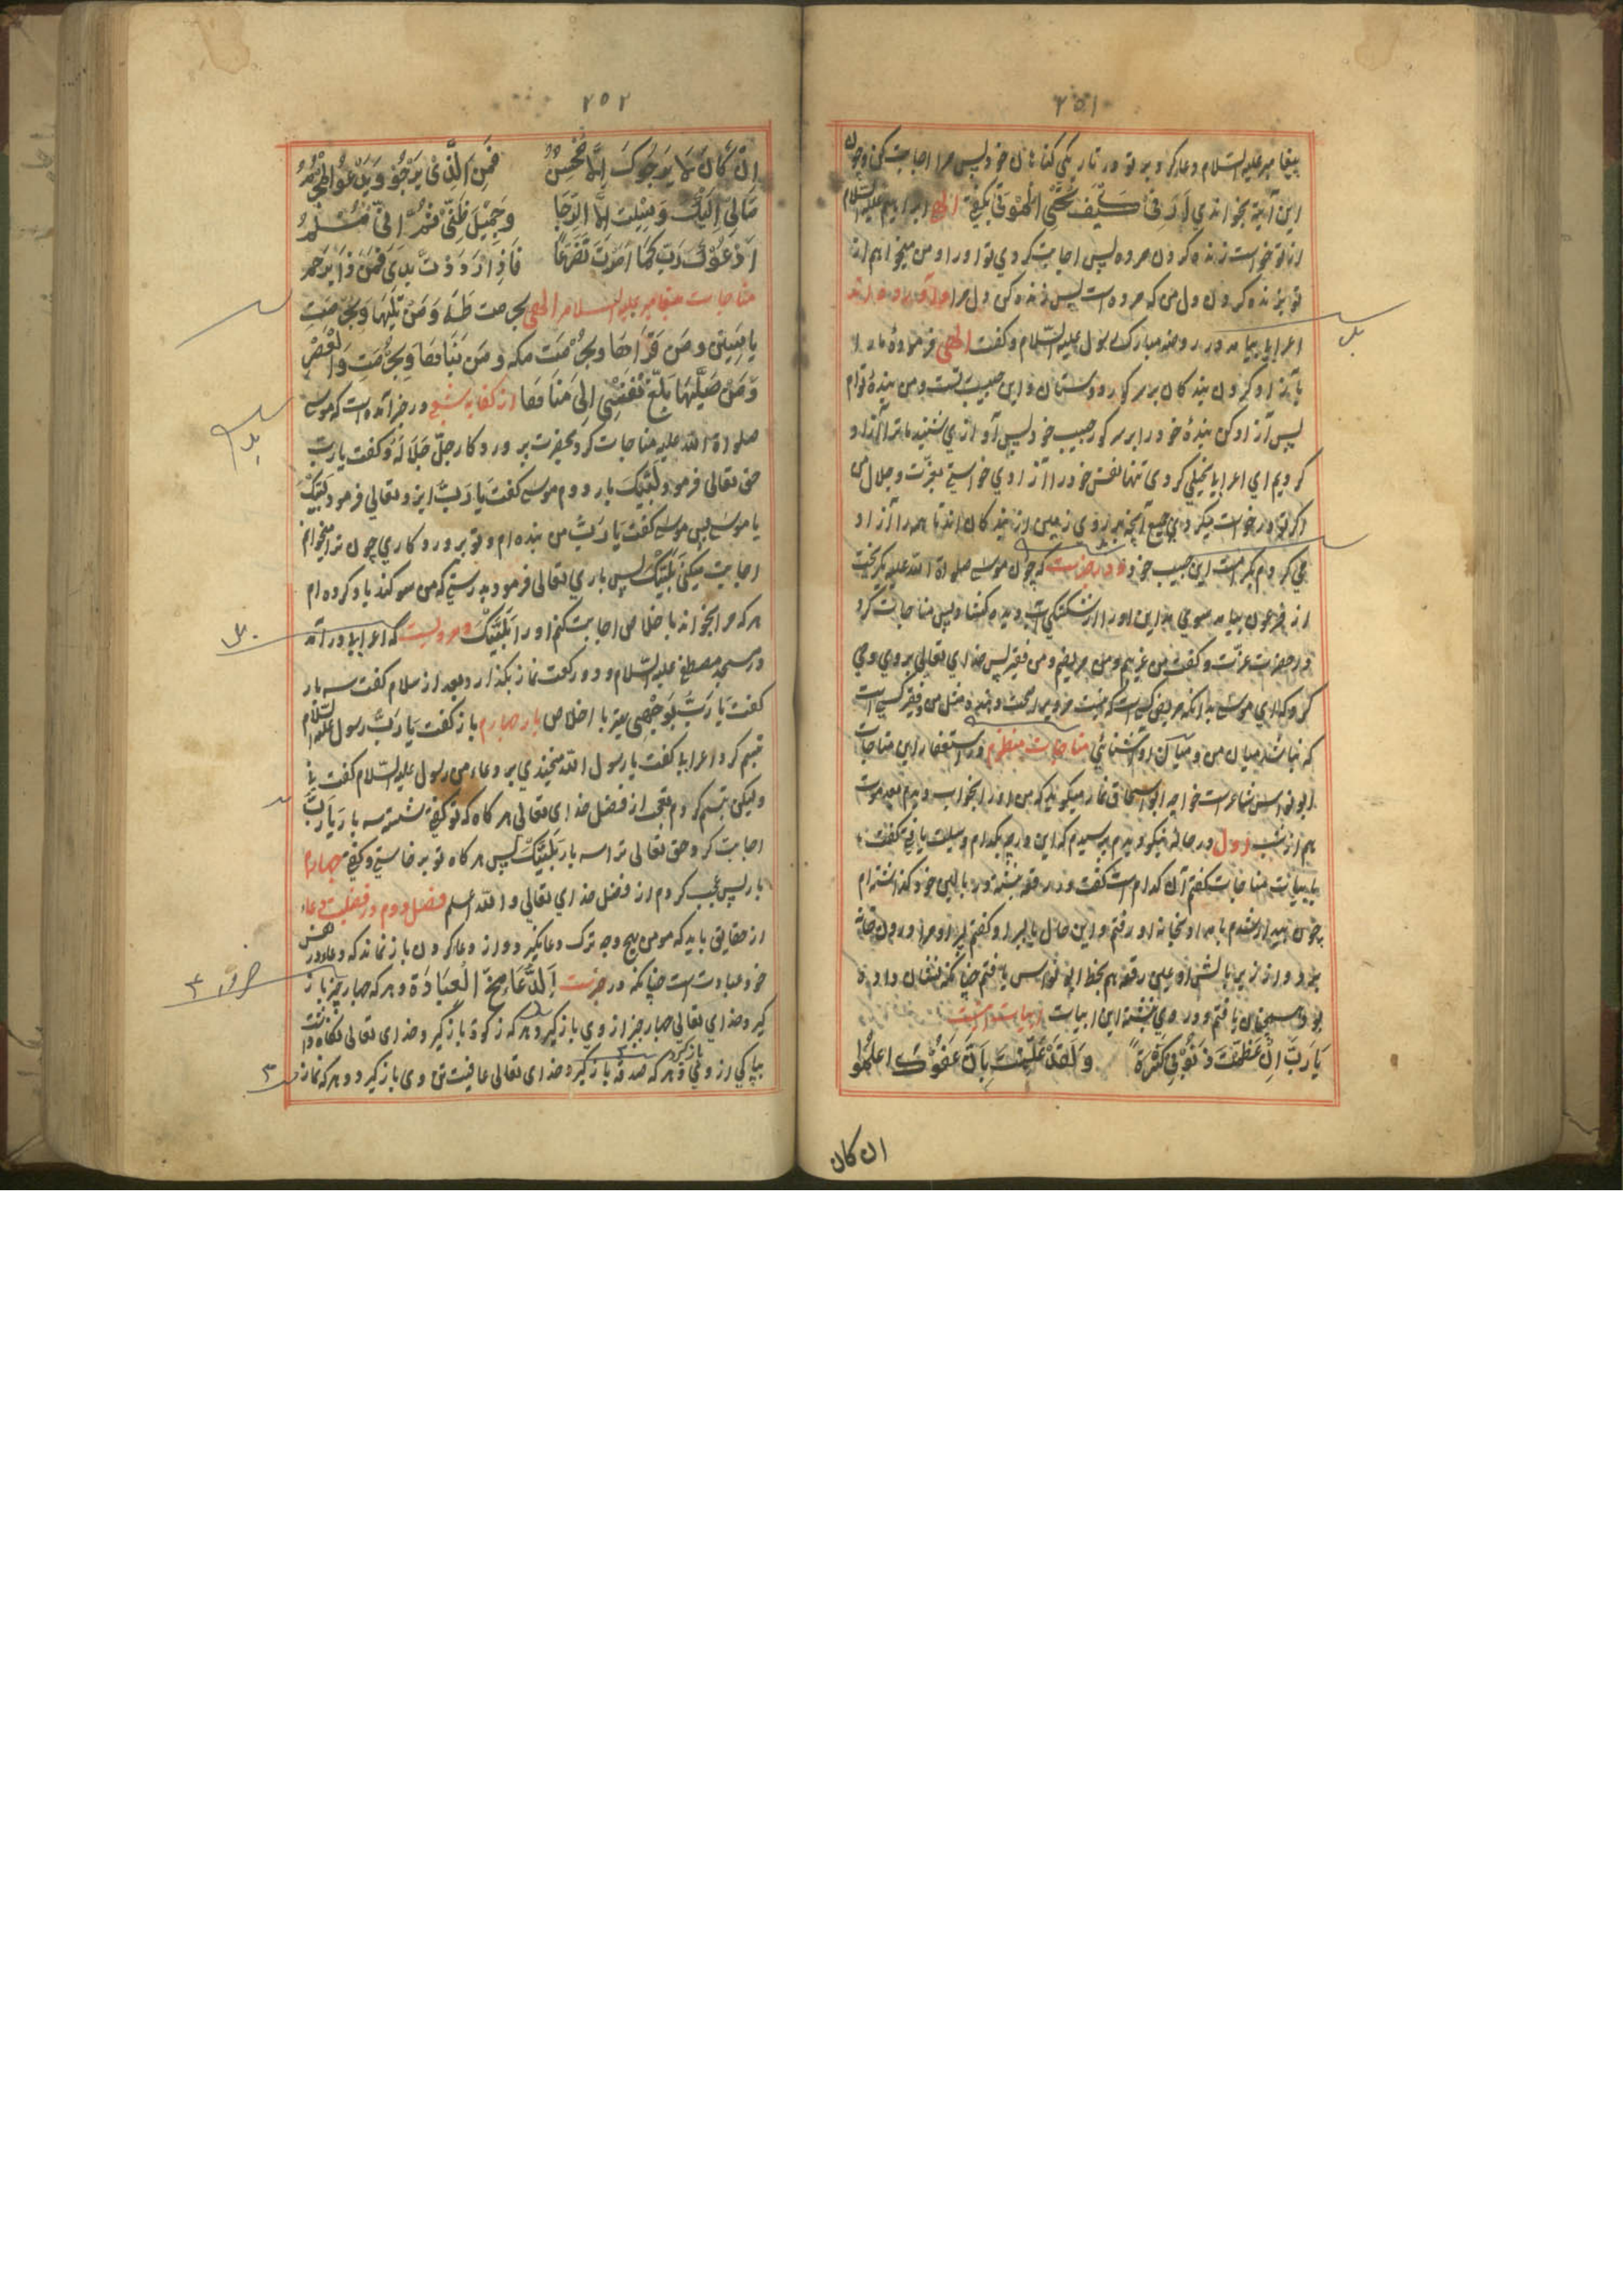 ٢٥١
پیغامبر علیه السلام دعا کرد و بر تو در تاریکی کناهان خود پس مرا اجابت کن و چون
این آیة بخواندی اَرِنِی کَیفَ تُحیِی الْمَوتی بکفتی الهی ابراهیم علیه السلام
از تو خواست زنده کردن مرده پس اجابت کردی تو او را و من میخواهم از
تو زنده کردن دل من که مرده است پس زنده کن دل مرا
اعرابی بیامد در روضه مبارک رسول علیه السّلام و کفت الهی فرمودهٔ ما را
بآزاد کردن بندکان بر سر کور دوستان و این حبیب تست و من بندهٔ توام
پس آزاد کن بندهٔ خود را بر سر کور حبیب خود پس آوازی شنید ما ترا آزاد
کردیم ای اعرابی بخیلی کردی تنها نفس خود را آزادی خواستی بعزّت و جلال من
اکر تو درخواست میکردی جمیع آنچه بر روی زمین از بندکان اند تا همه را آزاد
می کردم بکرامت این حبیب خود و در خبرست که چون موسی صلوة الله علیه بکریخت
از فرعون بیامد سوی مداین او را
در حضرت عزّت و کفت من غریبم و من مریضم و من فقیرم پس خدای تعالی بر وی وحی
کرد که ای موسی بدانکه مریض کسی است که نیست مر ویرا مثل من و فقیر کسی است
که نباشد میان من و میان او آشنائی مناجات منظوم در استغفار این مناجات
ابو نواس شاعرست خواجه ابو اسحاق نماز میکوید که من او را بخواب دیدم بعد موت
هم از شب اول در حالة نیکو دیدم پرسیدم که این درجه بکدام وسیلت یافتی کفت
بابیات مناجات کفتم آن کدام است کفت در رقعه نبشته در بالین خود کذاشته ام
چون بیدار شدم بامداد بخانه او رفتم و این حال با پسر او کفتم پسر او مرا درون خانه
برد و از زیر بالش او علیین رقعه هم بخط ابو نواس یافتم چنانکه نشان داده
بود همچنان یافتم و در وی نبشته این ابیات ابیات اینست
یَا رَبِّ اِنْ عَظُمَتْ ذُنُوْبِی کَثْرَةً وَ لَقَدْ عَلِمْتُ بِاَنَّ عَفْوَکَ اَعْظَمُ
ان کان
٢٥٢
اِنْ کَانَ لَا یَرْجُوکَ اِلَّا مُحْسِنٌ فَمَنِ الَّذِیْ یَرْجُوْ وَ یَدْعُو الْمُجْرِمُ
مَالِی اِلَیْکَ وَسِیْلَتٌ اِلَّا الرَّجَا وَ جَمِیْلُ ظَنِّیْ ثُمَّ اِنِّیْ مُسْلِمُ
اَدْعُوْکَ رَبِّ کَمَا اَمَرْتَ تَضَرُّعًا فَاِذَا رَدَدْتَّ یَدِیْ فَمَنْ ذَا یَرْحَمُ
مناجات پیغامبر علیه السلام الهی بحرمت طٰهٰ وَ مَنْ یَّلِیْهَا وَ بحُرْمَتِ
یاسین و مَن قَرَاهَا و بحُرْمَت مکه و مَن بَنَاهَا وَ بِحُرْمَتِ وَالْعَصْرِ
وَ مَنْ صَلَّیهَا بَلِّغْ نَفْسِی اِلی مُنَاهَا از کفایه شعبی در خبر آمده است که موسی
صلواة الله علیه مناجات کرد بحضرت پروردکار جلّ جَلَالَهُ و کفت یا ربّ
حق تعالی فرمود لَبَّیْکَ بار دوم موسی کفت یَا رَبِّ ایزد تعالی فرمود لَبَّیْکَ
یا موسی پس موسی کفت یَا رَبِّ من بنده ام و تو پروردکاری چون ترا میخوانم
اجابت میکنی بَلَبَّیْکَ پس باری تعالی فرمود بدرستی که من سوکند یاد کرده ام
هر که مرا بخواند باخلاص اجابت کنم او را بَلَبَّیْکَ و مرویست که اعرابی در آمد
در مسجد مصطفی علیه السّلام و دو رکعت نماز بکذارد و بعد از سلام کفت سه بار
کفت یَا رَبِّ بَوَجْهی بغیر با اخلاص بار چهارم باز کفت یَا رَبِّ رسول علیه السّلام
تبسم کرد اعرابی کفت یا رسول الله میخندی بر دعاء من رسول علیه السّلام کفت نی
ولیکن تبسم کردم بتعجب از فضل خدای تعالی هر کاه که تو کفتی نشسته سه بار یَا رَبِّ
اجابت کرد حق تعالی ترا سه بار بَلَبَّیْکَ پس هر کاه تو برخاستی و کفتی چهارم
بار پس عجب کردم از فضل خدای تعالی و الله اعلم فصل دوم در فضیلت دعاء
از حقایق باید که مومن هیچ وجه ترک دعا نکیرد و از دعا کردن باز نماند که دعا در نفس
خود عبادت است چنانکه در خبرست اَلدُّعَا مُخُّ الْعِبَادَة و هر که چهار چیز باز
کیرد خدای تعالی چهار چیز از وی باز کیرد هر که زکوة باز کیرد خدای تعالی نکاه داشت
باز کیرد
بپاکی از وی و هر که صدقه باز کیرد خدای تعالی عافیت تن وی باز کیرد و هر که نماز